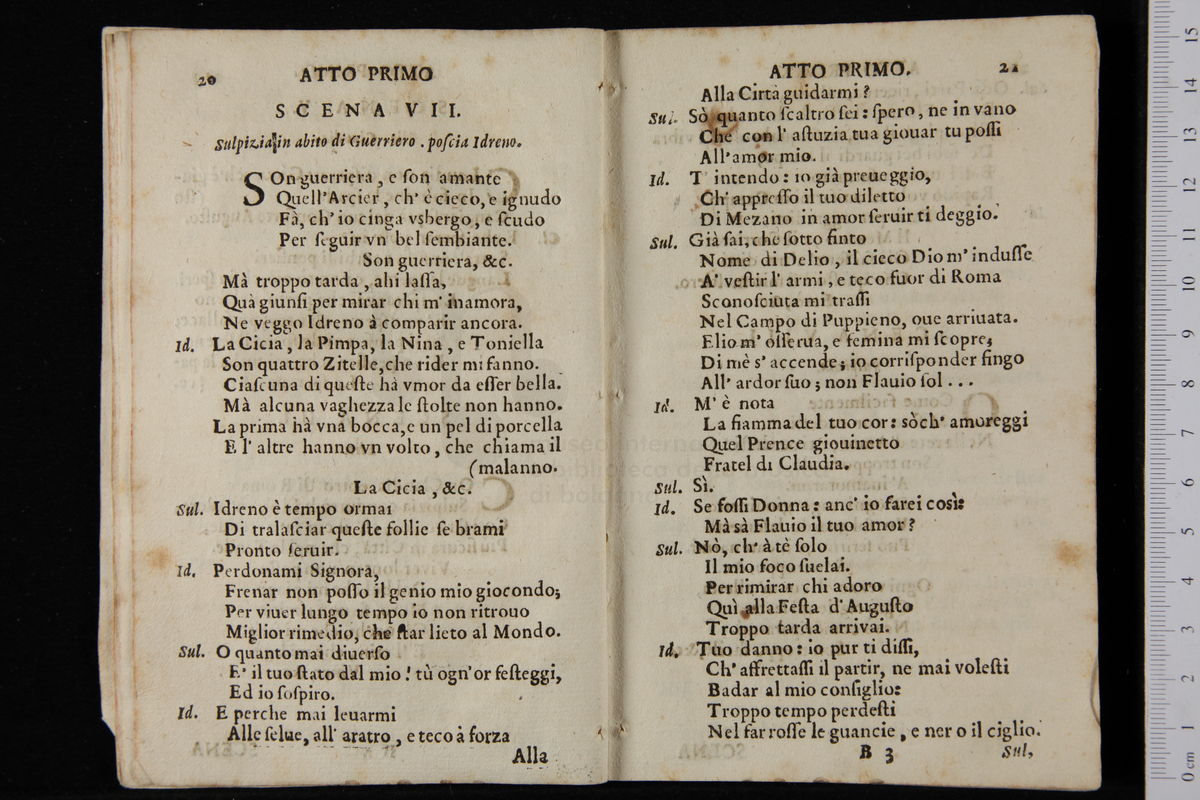 20 ATTO PRIMO
SCENA VII.
Sulpizia in abito di Guerriero . poſcia Idreno.
SOn guerriera , e ſon amante
Quell'Arcier , ch' è cieco, e ignudo
Fà, ch' io cinga vsbergo, e ſcudo
Per ſeguir vn bel ſembiante.
Son guerriera, &c.
Mà troppo tarda , ahi laſſa,
Quà giunſi per mirar chi m' inamora,
Ne veggo Idreno à comparir ancora.
Id. La Cicia , la Pimpa, la Nina , e Toniella
Son quattro Zitelle,che rider mi fanno.
Ciaſcuna di queſte hà vmor da eſſer bella.
Mà alcuna vaghezza le ſtolte non hanno.
La prima hà vna bocca,e un pel di porcella
E l' altre hanno vn volto , che chiama il
(malanno.
La Cicia , &c.
Sul. Idreno è tempo ormai
Di tralaſciar queſte follie ſe brami
Pronto ſeruir.
Id. Perdonami Signora,
Frenar non poſſo il genio mio giocondo;
Per viuer lungo tempo io non ritrouo
Miglior rimedio, che ſtar lieto al Mondo.
Sul. O quanto mai diuerſo
E' il tuo ſtato dal mio ! tù ogn'or feſteggi,
Ed io ſoſpiro.
Id. E perche mai leuarmi
Alle ſelue, all' aratro , e teco à forza
Alla
ATTO PRIMO. 21
Alla Cirtà guidarmi ?
Sul. Sò quanto ſcaltro ſei : ſpero , ne in vano
Che con l' aſtuzia tua giouar tu poſſi
All'amor mio.
Id. T intendo : io già preueggio,
Ch' appreſſo il tuo diletto
Di Mezano in amor ſeruir ti deggio.
Sul. Già ſai, che ſotto finto
Nome di Delio , il cieco Dio m' induſſe
A' veſtir l' armi , e teco fuor di Roma
Sconoſciuta mi traſſi
Nel Campo di Puppieno, oue arriuata.
Elio m' oſſerua, e femina mi ſcopre;
Di mè s' accende ; io corriſponder fingo
All' ardor ſuo ; non Flauio ſol . . .
Id. M' è nota
La fiamma del tuo cor: sòch' amoreggi
Quel Prence giouinetto
Fratel di Claudia.
Sul. Sì.
Id. Se foſſi Donna : anc' io farei così:
Mà sà Flauio il tuo amor ?
Sul. Nò, ch' à tè ſolo
Il mio foco ſuelai.
Per rimirar chi adoro
Quì alla Feſta d' Auguſto
Troppo tarda arrivai.
Id. Tuo danno : io pur ti diſſi,
Ch' affrettaſſi il partir, ne mai voleſti
Badar al mio conſiglio:
Troppo tempo perdeſti
Nel far roſſe le guancie , e nero il ciglio.
B 3 Sul,